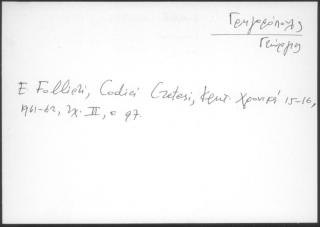 Γεωργιόπουλος
Γεώργιος
E. Follieri, Codici Cretesi, Κρητ. Χρονικά 15-16,
1961-62, τχ. II, σ 97.